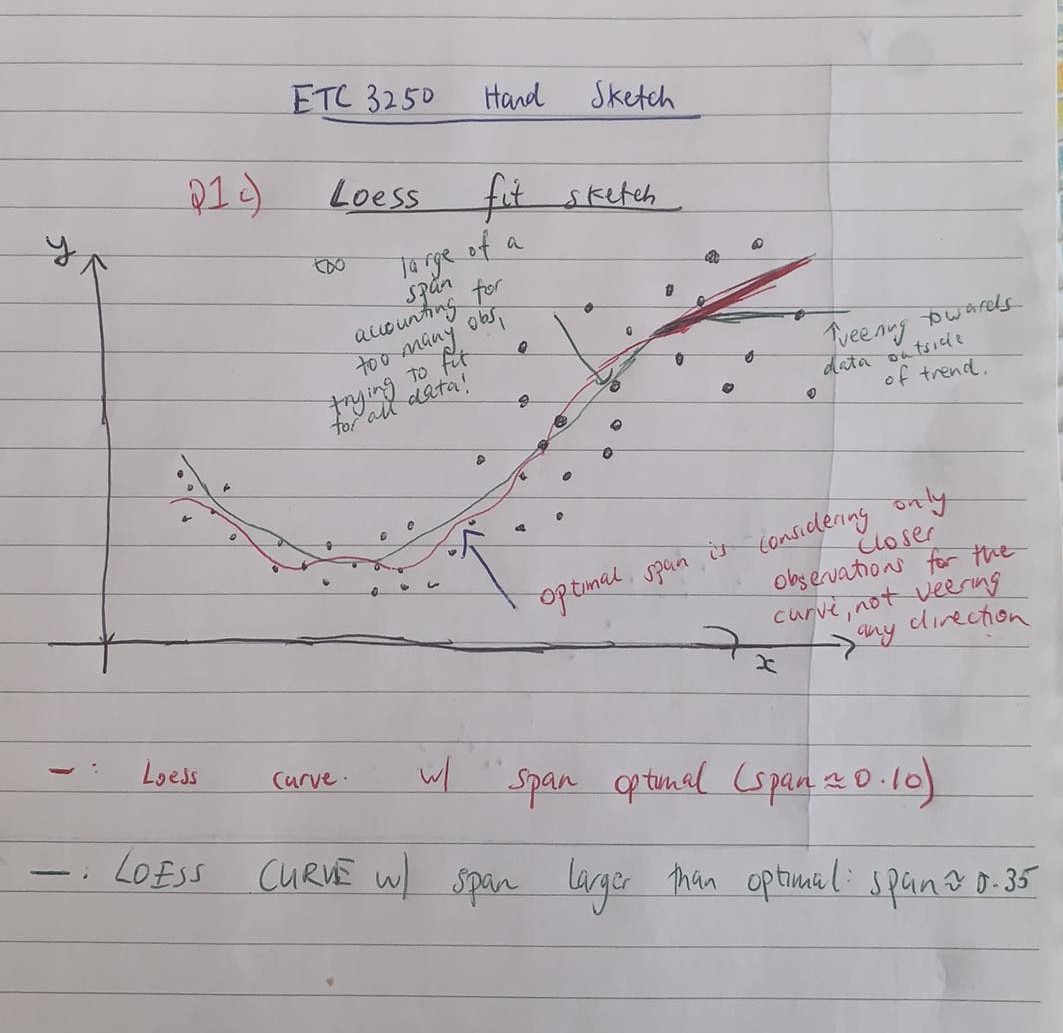 ETC 3250 Hand Sketch
Q1c) Loess fit sketch
y
too large of a
span for
accounting for
too many obs,
trying to fit
for all data!
↑veering towards
data outside
of trend.
optimal span is considering only
closer
observations for the
curve, not veering
any direction
x
—: Loess curve. w/ span optimal (span ≈ 0.10)
—: LOESS CURVE w/ span larger than optimal: span ≈ 0.35